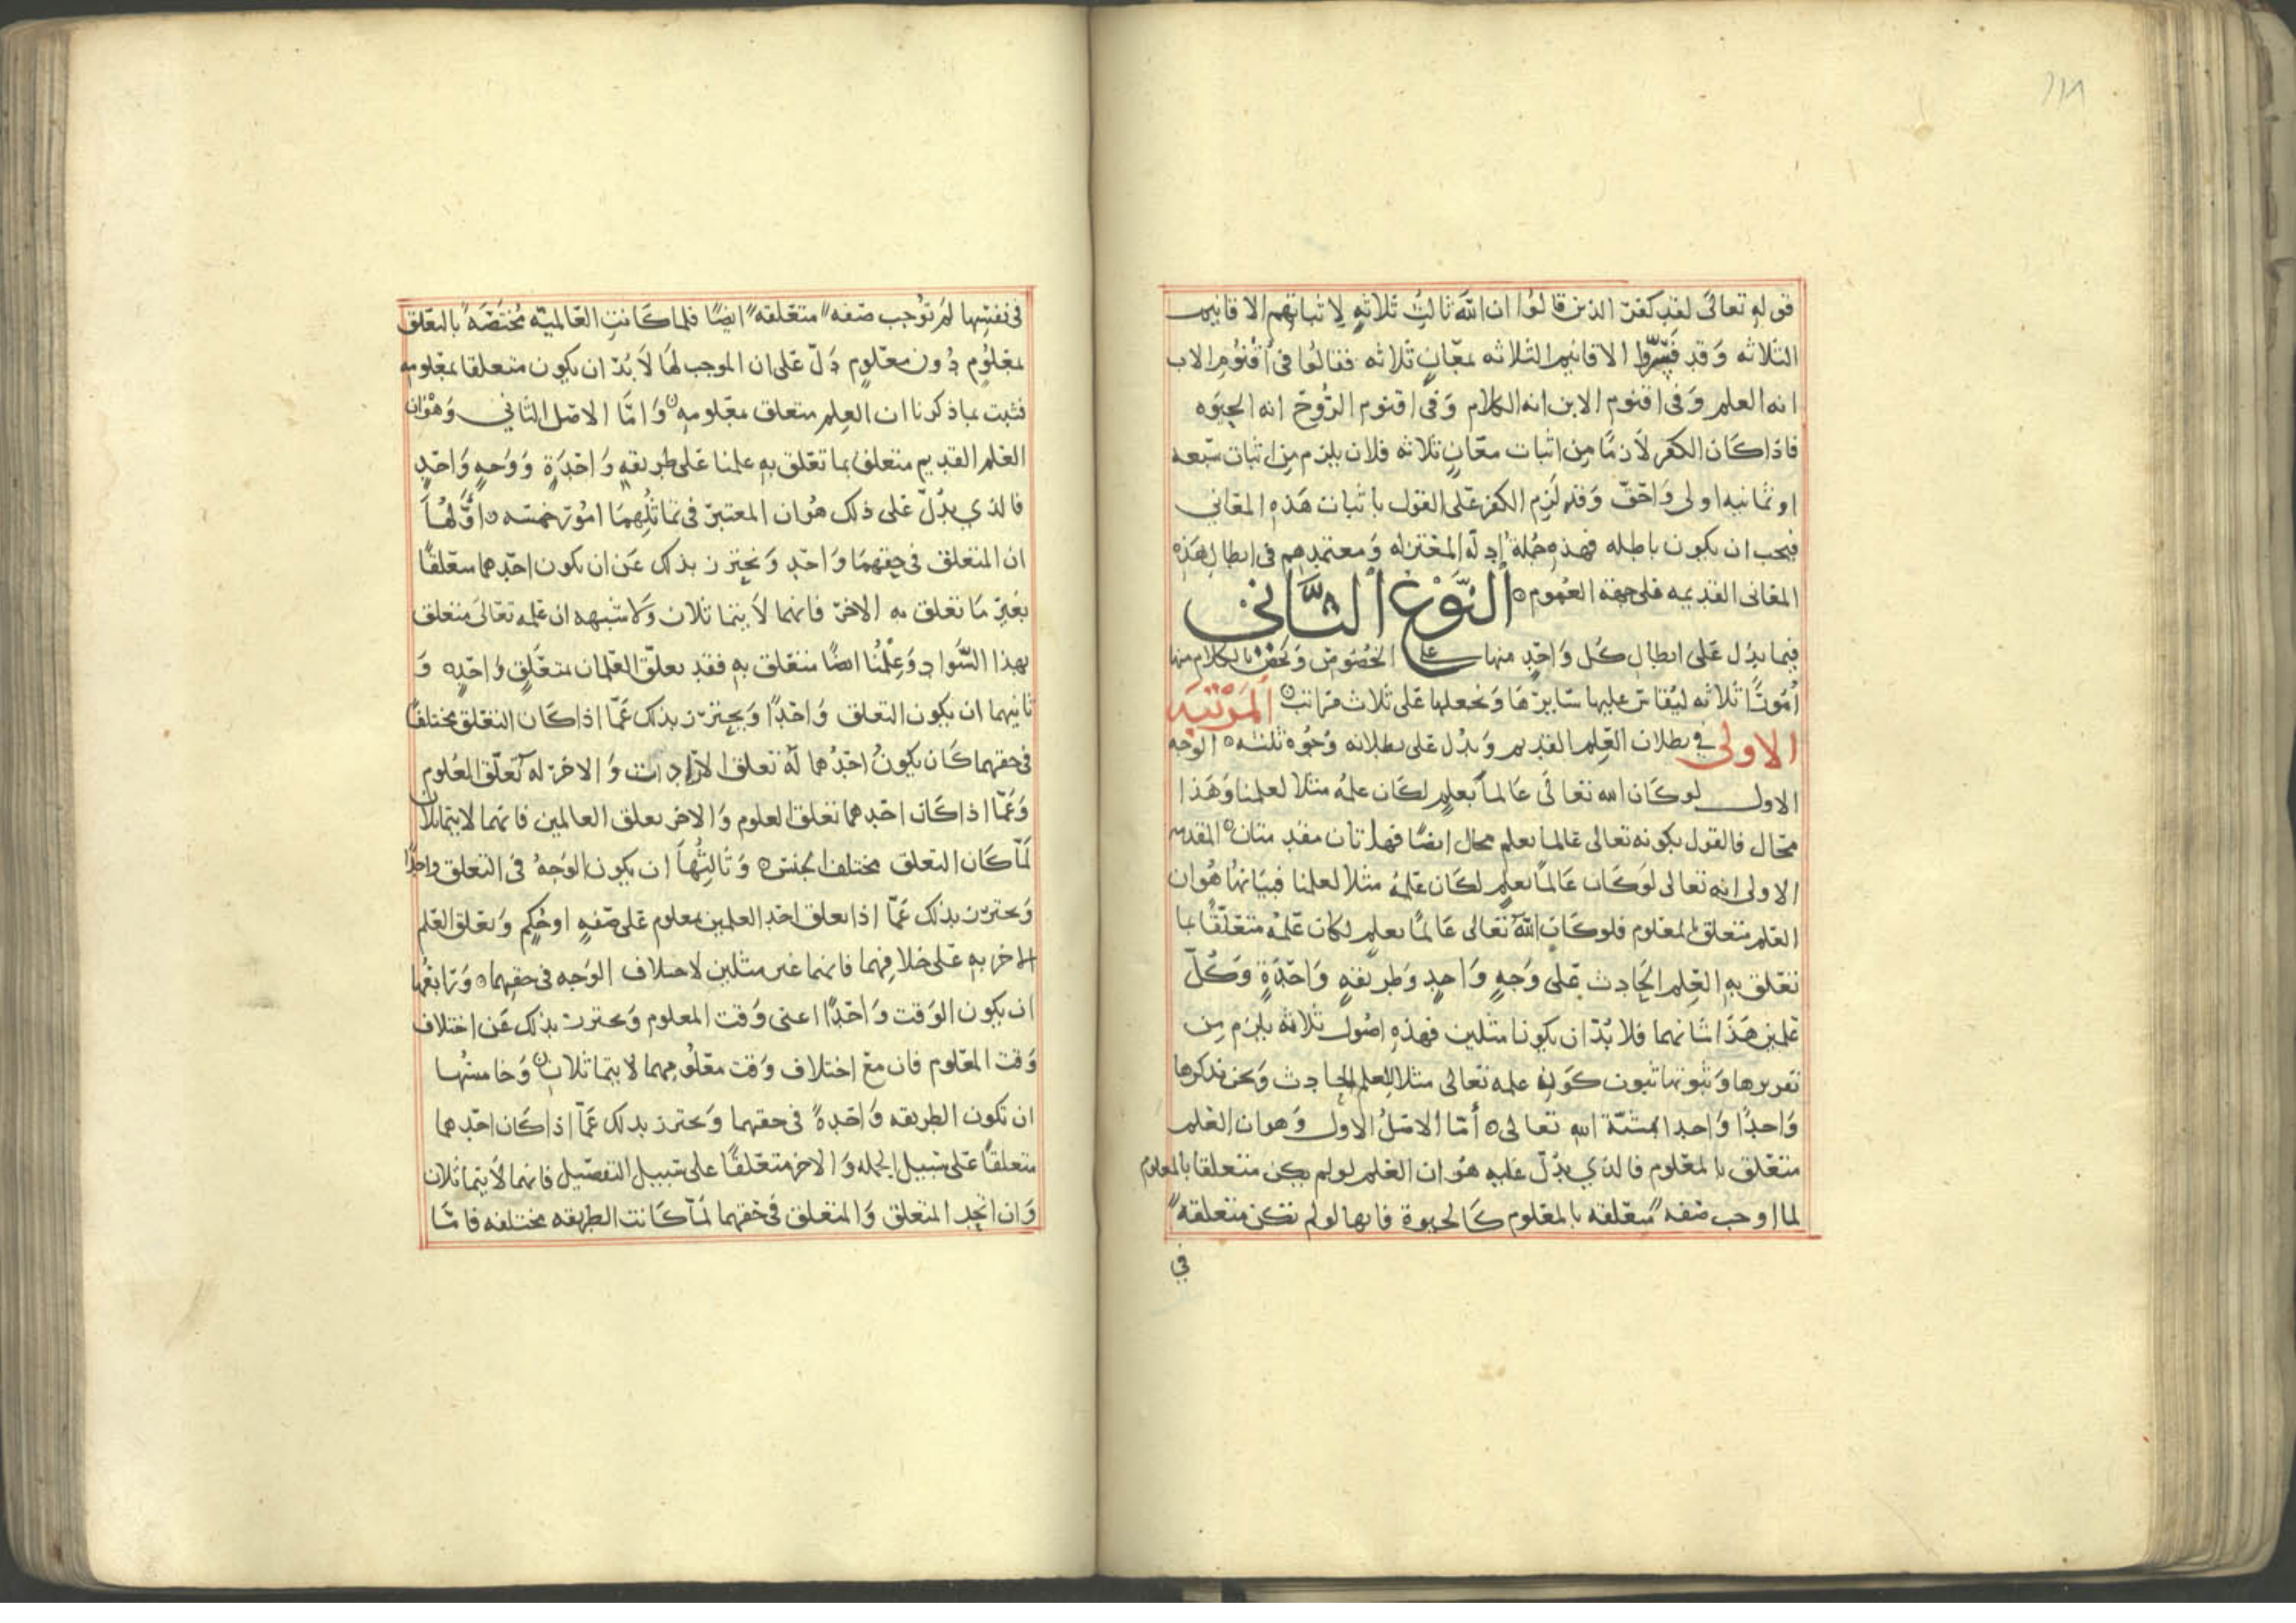 ١١٨
قوله تعالى لقد كفر الذين قالوا ان الله ثالث ثلاثه لاثباتهم الاقانيم
الثلاثه وقد فسروا الاقانيم الثلاثه بمعان ثلاثه فقالوا في أقنوم الاب
انه العلم وفي اقنوم الابن انه الكلام وفي اقنوم الروح انه الحيوه
فاذا كان الكفر لازما من اثبات معان ثلاثه فلان يلزم من اثبات سبعه
او ثمانيه اولى واحق وقد لزم الكفر على القول باثبات هذه المعاني
فيجب ان يكون باطله فهذه جملة ادلة المعتزله ومعتمدهم في ابطال هذه
المعاني القديمه على جهة العموم ٥ النوع الثاني
فيما يدل على ابطال كل واحد منها على الخصوص ونخص بالكلام منها
أمورا ثلاثه ليقاس عليها سايرها ونجعلها على ثلاث مراتب ٥ المرتبه
الاولى في بطلان العلم القديم ويدل على بطلانه وجوه ثلثه ٥ الوجه
الاول لو كان الله تعالى عالما بعلم لكان علمه مثلا لعلمنا وهذا
محال فالقول بكونه تعالى عالما بعلم محال ايضا فهاتان مقدمتان ٥ المقدمه
الاولى انه تعالى لو كان عالما بعلم لكان علمه مثلا لعلمنا فبيانها هو ان
العلم متعلق بالمعلوم فلو كان الله تعالى عالما بعلم لكان علمه متعلقا بما
تعلق به العلم الحادث على وجه واحد وطريقه واحدة وكل
علمين هذا شانهما فلا بد ان يكونا مثلين فهذه اصول ثلاثه يلزم من
تقريرها وثبوتها ثبوت كون علمه تعالى مثلا للعلم الحادث ونحن نذكرها
واحدا واحدا بمشية الله تعالى ٥ أما الاصل الاول وهو ان العلم
متعلق بالمعلوم فالذي يدل عليه هو ان العلم لو لم يكن متعلقا بالمعلوم
لما اوجب صفه متعلقه بالمعلوم كالحيوة فانها لو لم تكن متعلقه
في
في نفسها لم توجب صفه متعلقه ايضا فلما كانت العالميه مختصه بالتعلق
بمعلوم دون معلوم دل على ان الموجب لها لا بد ان يكون متعلقا بمعلومه
فثبت بما ذكرنا ان العلم متعلق بمعلومه ٥ واما الاصل الثاني وهو ان
العلم القديم متعلق بما تعلق به علمنا على طريقه واحدة ووجه واحد
فالذي يدل على ذلك هو ان المعتبر في تماثلهما امور خمسه ٥ اولها
ان المتعلق في حقهما واحد ونحترز بذلك عن ان يكون احدهما متعلقا
بغير ما تعلق به الاخر فانهما لا يتماثلان ولا شبهه ان علمه تعالى متعلق
بهذا السواد وعلمنا ايضا متعلق به فقد تعلق العلمان بمتعلق واحد ٥ و
ثانيهما ان يكون التعلق واحدا ويحترز بذلك عما اذا كان التعلق مختلفا
في حقهما كان يكون احدهما له تعلق الارادات والاخر له تعلق العلوم
وعما اذا كان احدهما تعلق العلوم والاخر تعلق العالمين فانهما لا يتماثلان
لما كان التعلق مختلف الجنس ٥ وثالثها ان يكون الوجه في التعلق واحدا
ويحترز بذلك عما اذا تعلق احد العلمين بمعلوم على صفه او حكم وتعلق العلم
الاخر به على خلافهما فانهما غير مثلين لاختلاف الوجه في حقهما ٥ ورابعها
ان يكون الوقت واحدا اعني وقت المعلوم ويحترز بذلك عن اختلاف
وقت المعلوم فان مع اختلاف وقت معلومهما لا يتماثلان ٥ وخامسها
ان تكون الطريقه واحدة في حقهما ويحترز بذلك عما اذا كان احدهما
متعلقا على سبيل الجمله والاخر متعلقا على سبيل التفصيل فانهما لا يتماثلان
وان اتحد المتعلق والمتعلق في حقهما لما كانت الطريقه مختلفه فاما